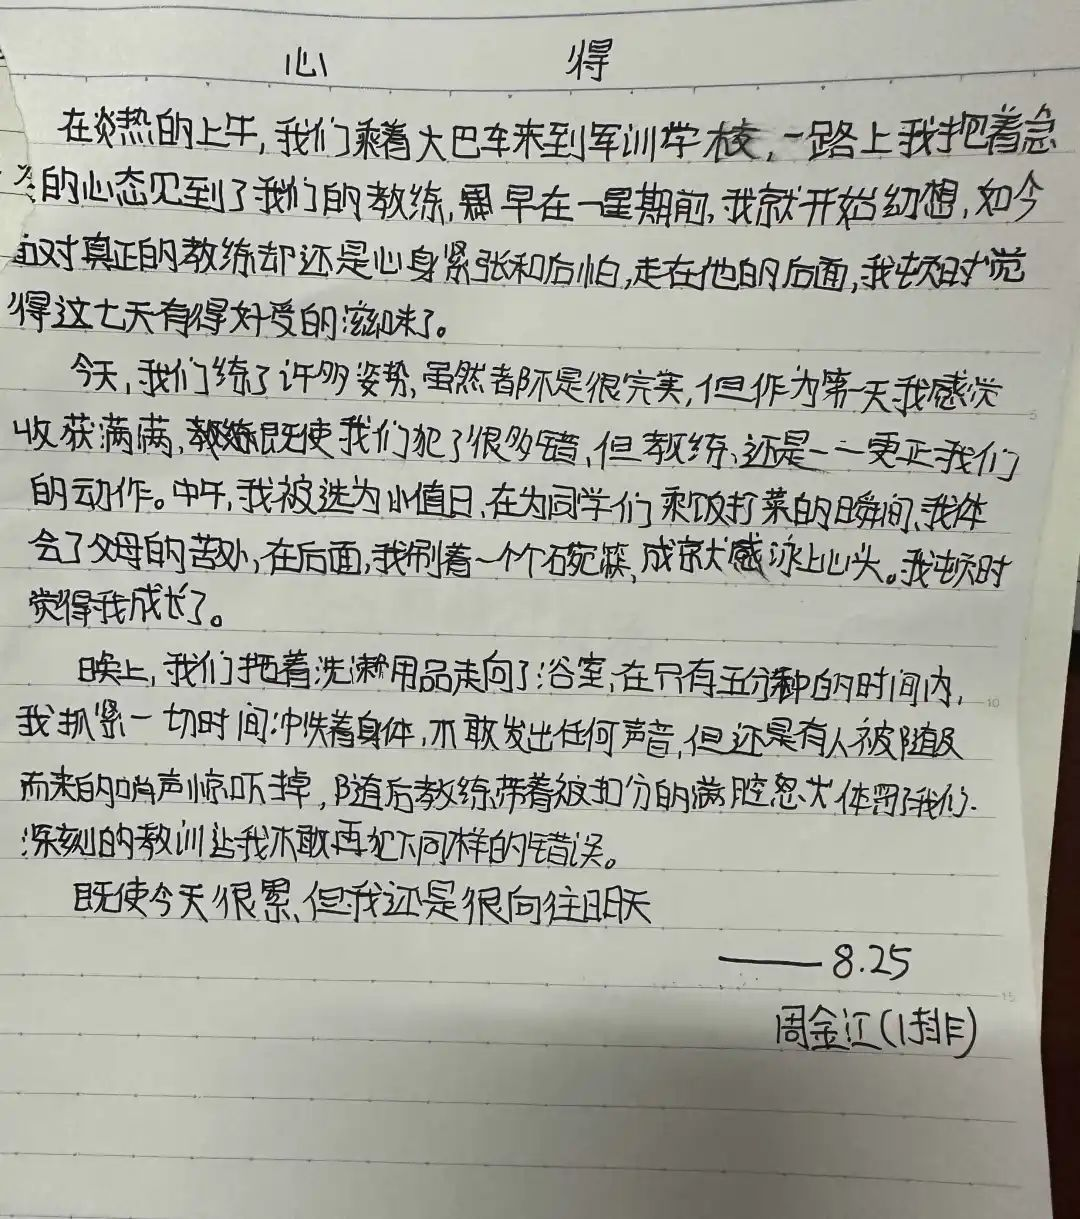 心 得
在炎热的上午,我们乘着大巴车来到军训学校,一路上我抱着急
的心态见到了我们的教练,早在一星期前,我就开始幻想,如今
面对真正的教练却还是心身紧张和后怕,走在他的后面,我顿时觉
得这七天有得好受的滋味了。
今天,我们练了许多姿势,虽然都不是很完美,但作为第一天我感觉
收获满满,教练既使我们犯了很多错,但教练、还是一一更正我们
的动作。中午,我被选为小值日、在为同学们乘饭打菜的瞬间、我体
会了父母的苦处,在后面,我刷着一个个碗筷,成就感涌上心头。我顿时
觉得我成长了。
晚上,我们拖着洗漱用品走向了浴室,在只有五分种的时间内,
我抓紧一切时间冲洗着身体,不敢发出任何声音,但还是有人被随及
而来的哨声惊吓掉,随后教练带着被扣分的满腔怒火体罚了我们.
深刻的教训让我不敢再犯下同样的错误。
既使今天很累、但我还是很向往明天
——8.25
周金江(1排)
10
15